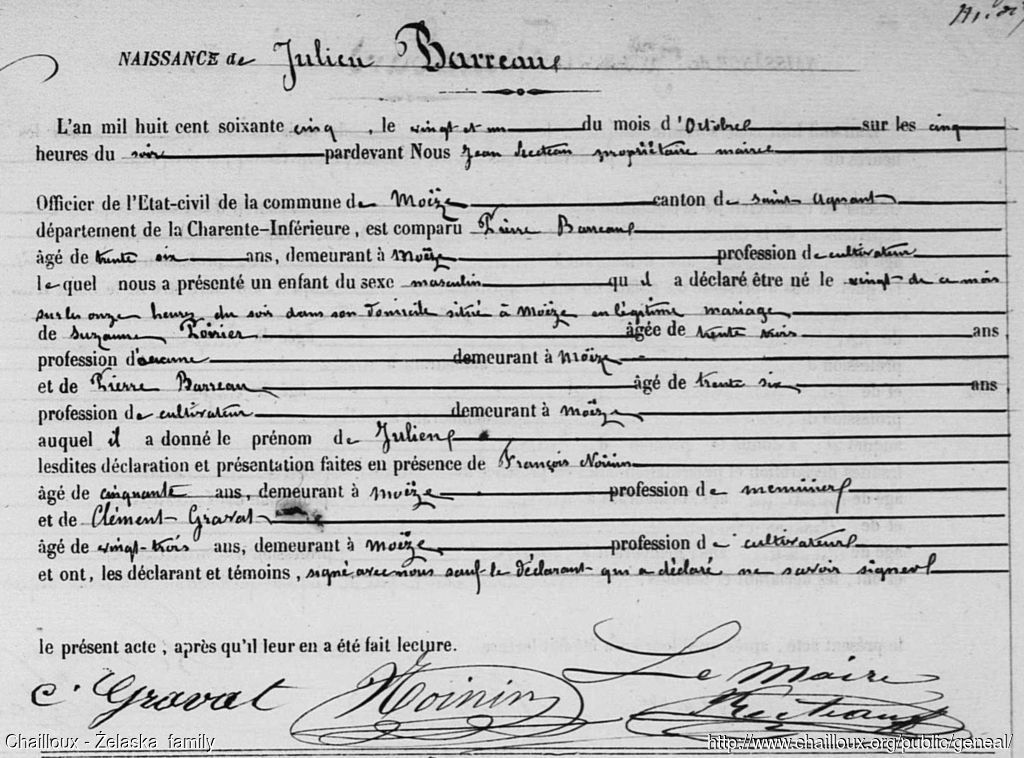 NAISSANCE de Julien Barreau
L'an mil huit cent soixante cinq, le vingt et un du mois d'Octobre sur les cinq
heures du soir pardevant Nous Jean propriétaire maire
Officier de l'Etat-civil de la commune de Moëze canton de saint Agnant
département de la Charente-Inférieure, est comparu Pierre Barreau
âgé de trente six ans, demeurant à Moëze profession de cultivateur
lequel nous a présenté un enfant du sexe masculin qu'il a déclaré être né le vingt de ce mois
sur les onze heures du soir dans son domicile situé à Moëze en légitime mariage
de Suzanne Poirier âgée de trente trois ans
profession d'aucune demeurant à Moëze
et de Pierre Barreau âgé de trente six ans
profession de cultivateur demeurant à Moëze
auquel il a donné le prénom de Julien
lesdites déclaration et présentation faites en présence de François Noinin
âgé de cinquante ans, demeurant à Moëze profession de
et de Clément Gravat
âgé de vingt-trois ans, demeurant à Moëze profession de cultivateur
et ont, les déclarant et témoins, signé avec nous sauf le déclarant qui a déclaré ne savoir signer
le présent acte, après qu'il leur en a été fait lecture.
C. Gravat Noinin Le Maire
Chailloux - Želaska family http://www.chailloux.org/public/geneal/